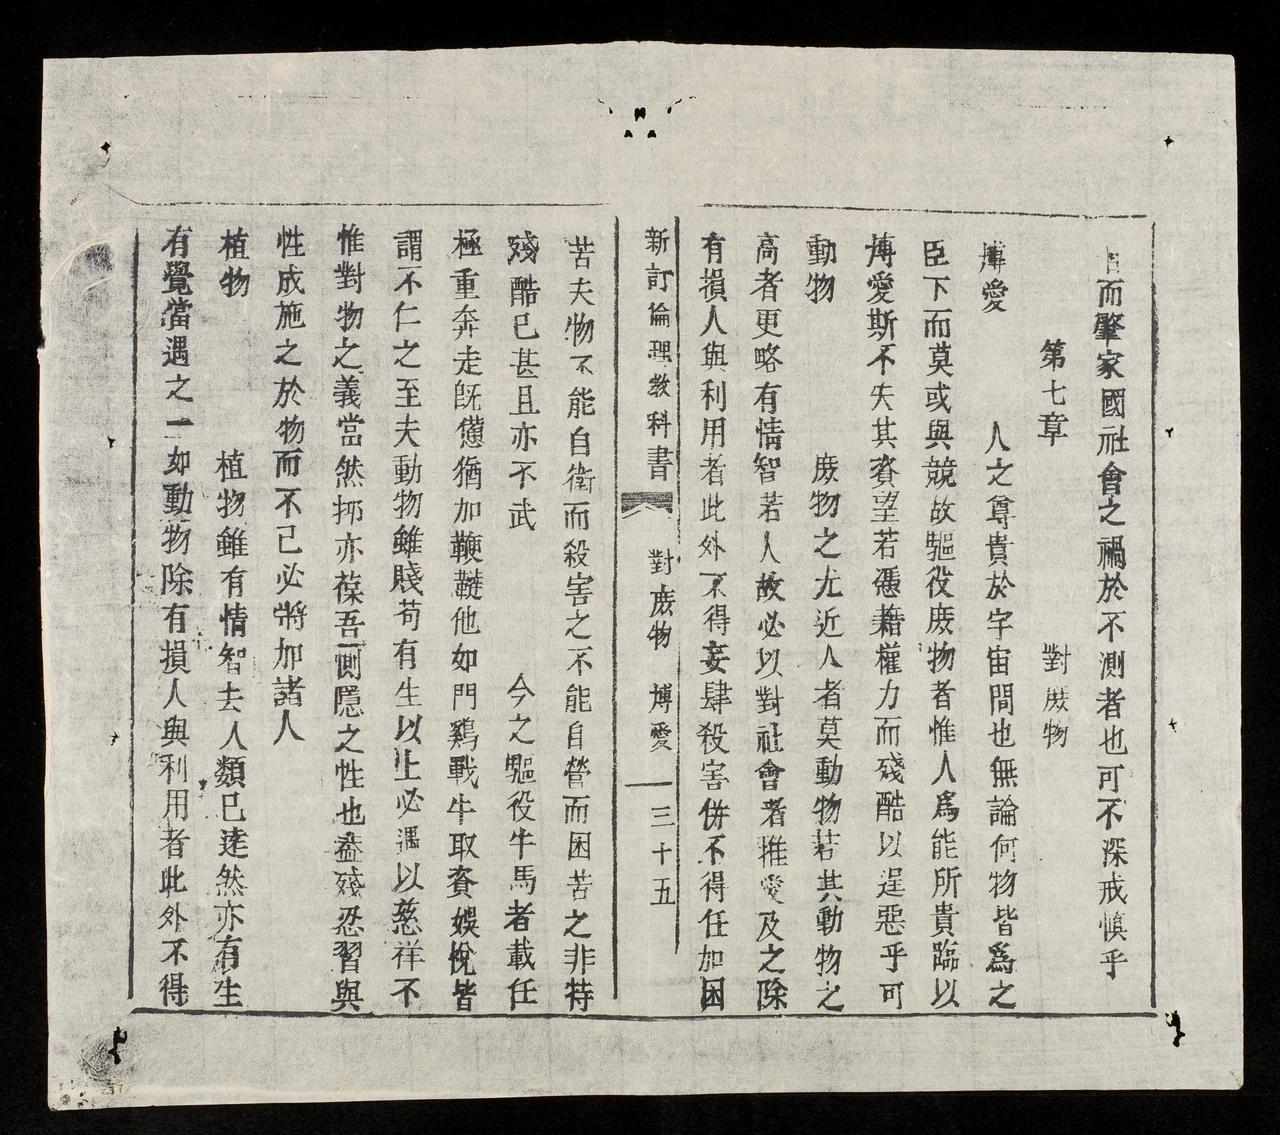 而肇家國社會之禍於不測者也可不深戒慎乎
第七章　對庻物
博愛　人之尊貴於宇宙間也無論何物皆爲之
臣下而莫或與競故驅役庻物者惟人爲能所貴臨以
博愛斯不失其賚望若憑藉權力而殘酷以逞惡乎可
動物　庻物之尤近人者莫動物若其動物之
高者更略有情智若人故必以對社會者推愛及之除
有損人與利用者此外不得妄肆殺害併不得任加困
新訂倫理教科書　對庻物　博愛　三十五
苦夫物不能自衛而殺害之不能自營而困苦之非特
殘酷已甚且亦不武　今之驅役牛馬者載任
極重奔走旣憊猶加鞭韃他如門鷄戰牛取資娛悅皆
謂不仁之至夫動物雖賤苟有生以上必遇以慈祥不
惟對物之義當然抑亦葆吾惻隱之性也蓋殘忍習與
性成施之於物而不己必將加諸人
植物　植物雖有情智去人類已逺然亦有生
有覺當遇之一如動物除有損人與利用者此外不得